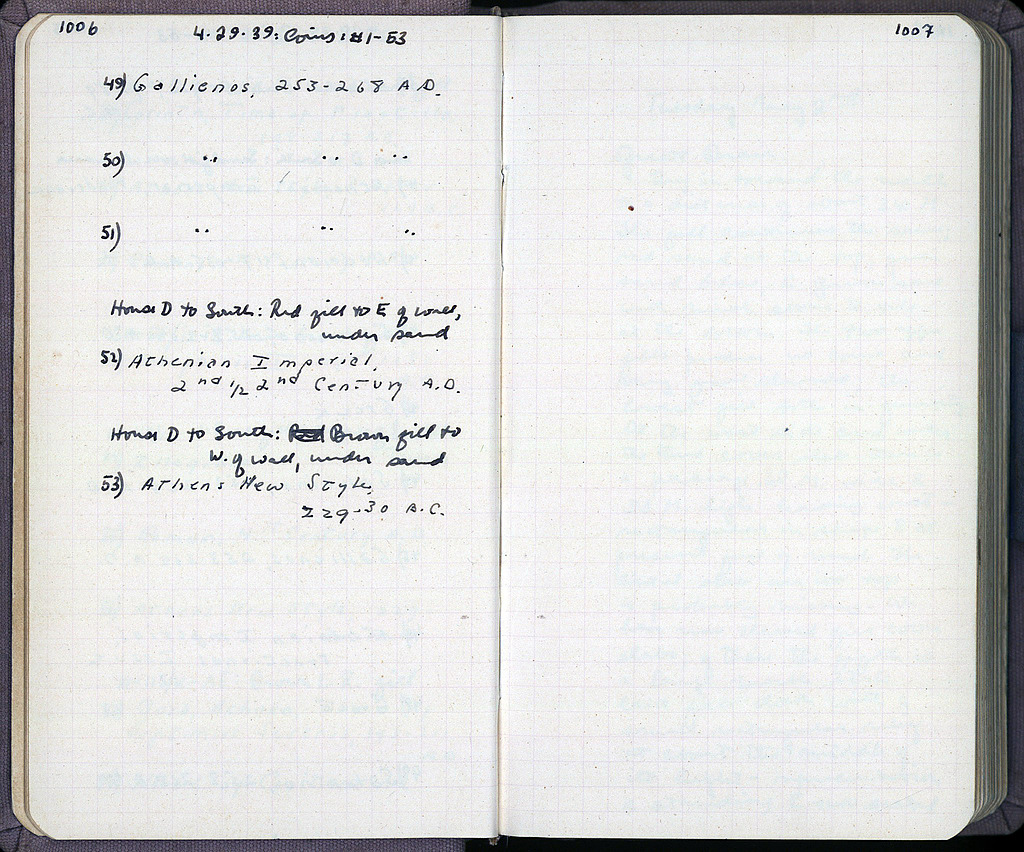 1006
4·29·39: Coins: #1-53
49) Gallienos, 253-268 A.D.
50) " " "
51) " " "
House D to South: Red fill to E of wall,
under sand
52) Athenian Imperial,
2nd 1/2 2nd Century A.D.
House D to South: Red Brown fill to
W. of wall, under sand
53) Athens New Style,
229-30 B.C.
1007